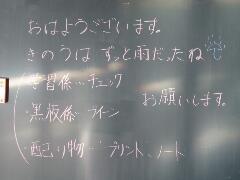 おはようございます。
きのうはずっと雨だったね
学習係…チェック
・黒板係…ライン
お願いします。
・配り物…プリント、ノート